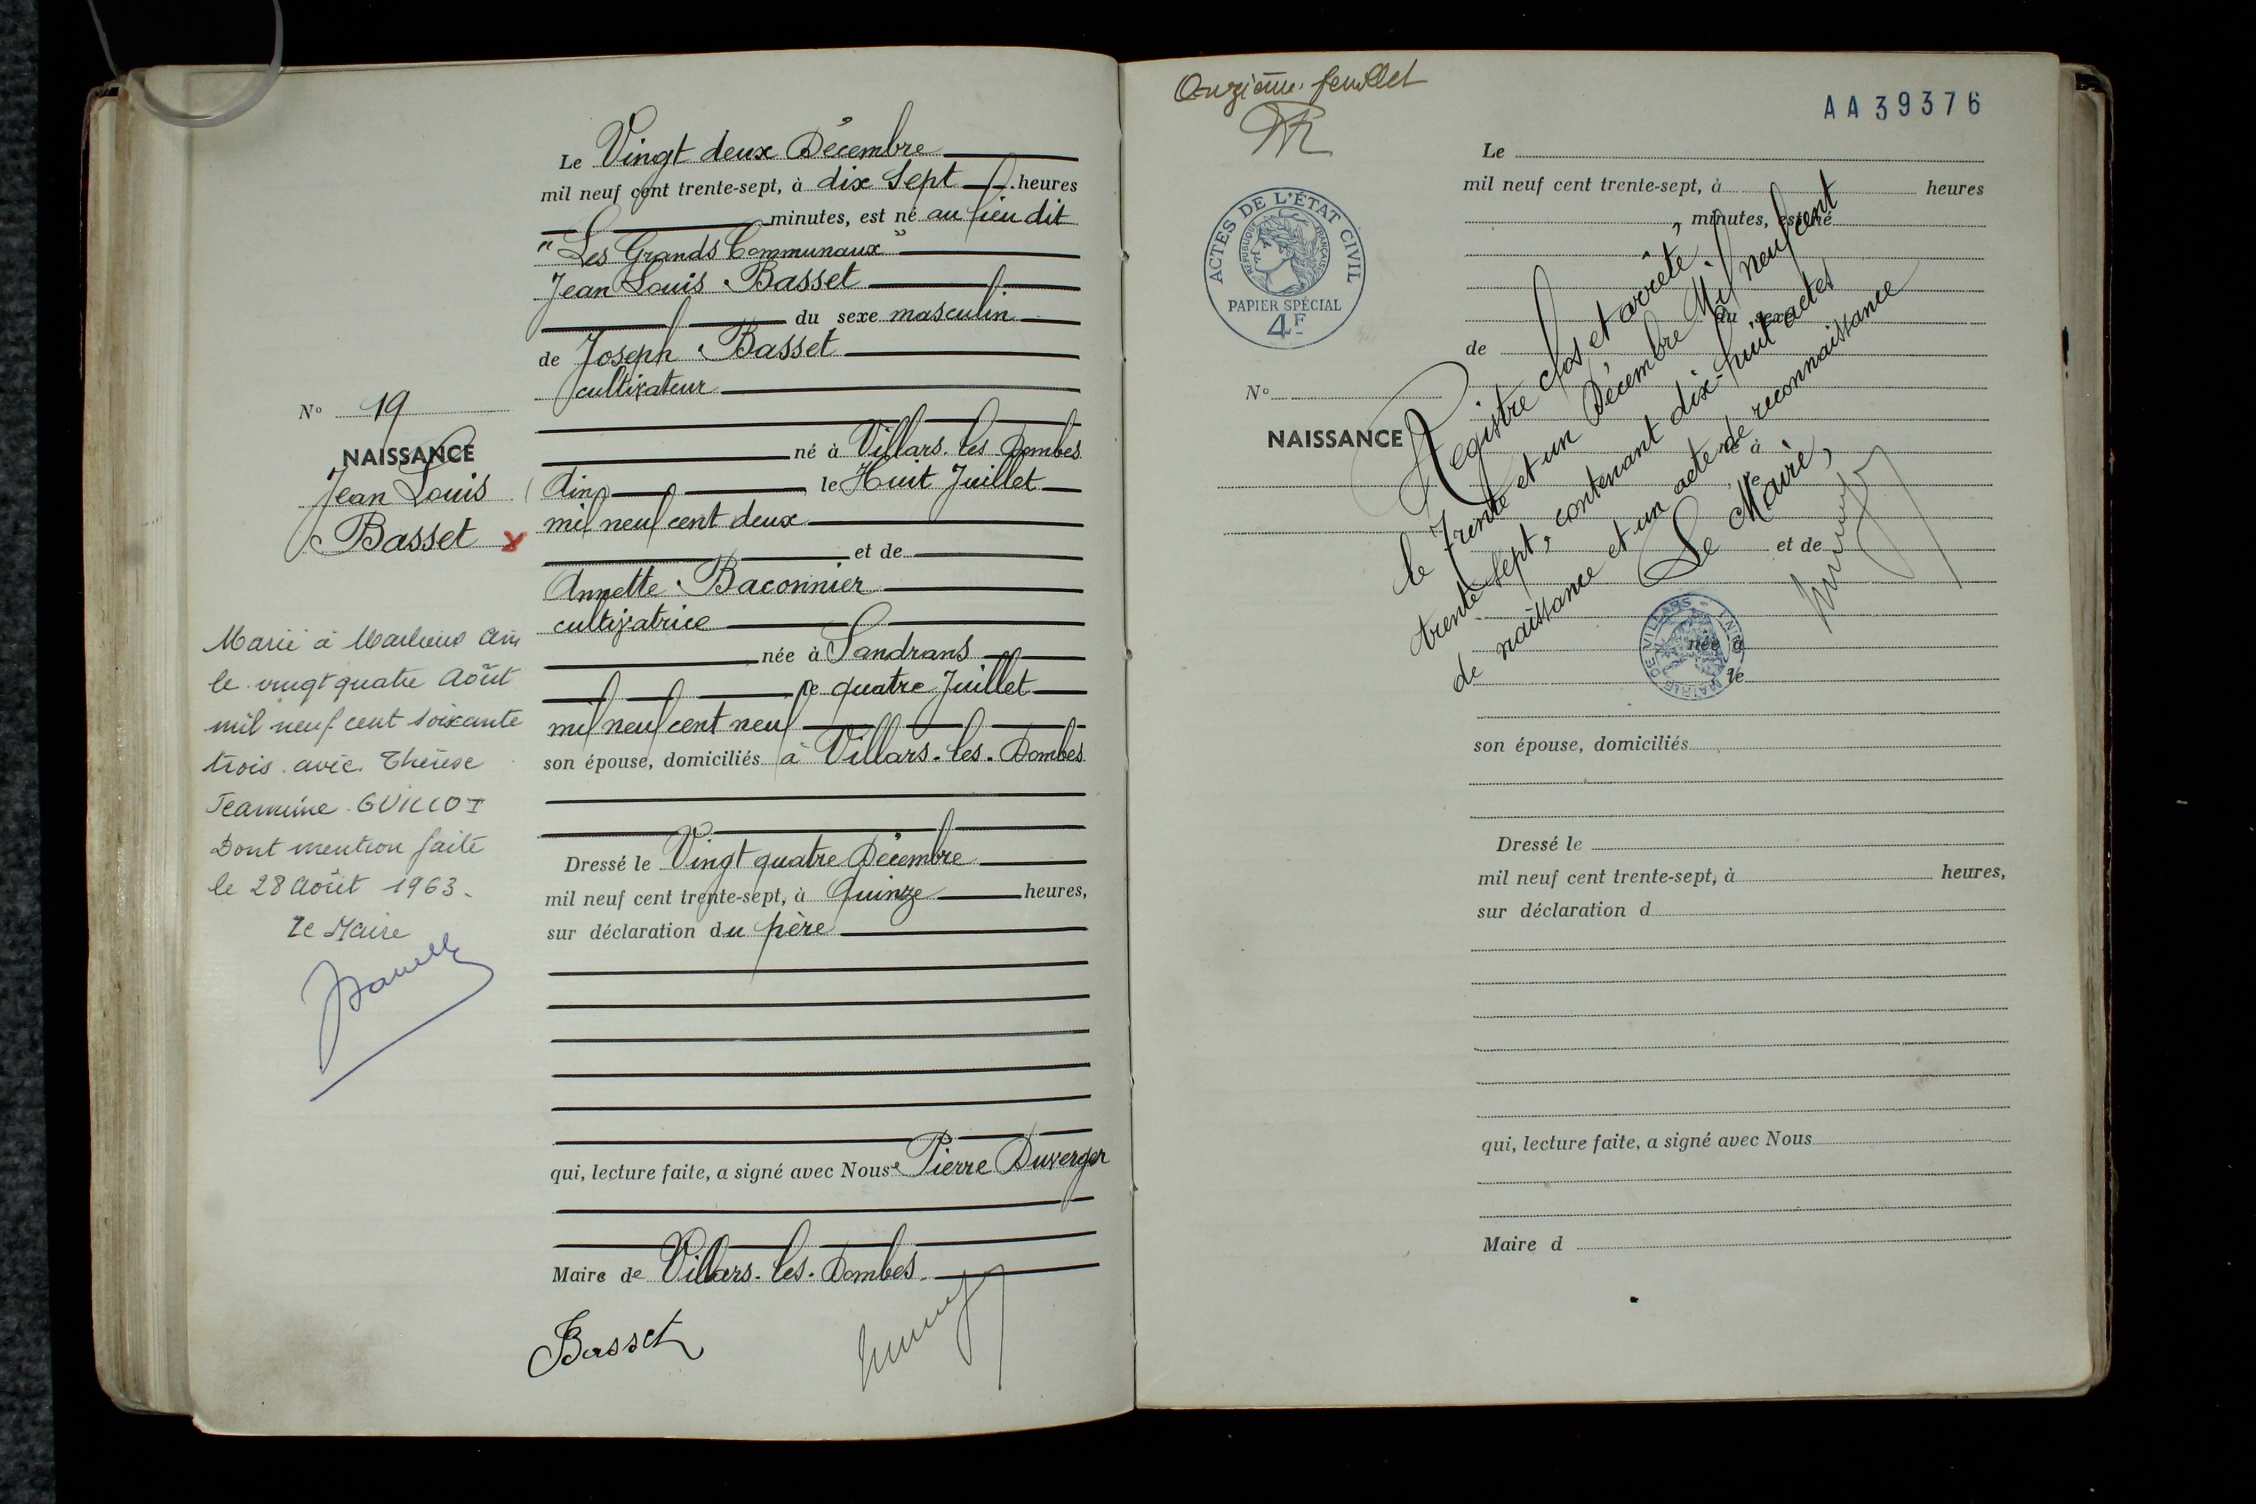 Le Vingt deux Décembre
mil neuf cent trente-sept, à dix sept heures
minutes, est né au lieu dit
"Les Grands Communaux"
Jean Louis Basset
du sexe masculin
de Joseph Basset
cultivateur
né à Villars. les Dombes
Ain le Huit Juillet
mil neuf cent deux
et de
Annette Baconnier
cultivatrice
née à Sandrans
le quatre Juillet
mil neuf cent neuf
son épouse, domiciliés à Villars. les. Dombes
Dressé le Vingt quatre Décembre
mil neuf cent trente-sept, à Quinze heures,
sur déclaration du père
qui, lecture faite, a signé avec Nous Pierre Duverger
Maire de Villars. les. Dombes
Basset
No 19
NAISSANCE
Jean Louis
Basset
Marié à Marlieux Ain
le vingt quatre Août
mil neuf cent soixante
trois avec Thérèse
Jeannine GUILLOT
Dont mention faite
le 28 Août 1963.
Le Maire
Onzième feuillet
AA39376
ACTES DE L'ÉTAT CIVIL
REPUBLIQUE FRANÇAISE
PAPIER SPÉCIAL
4F
No
NAISSANCE
Le
mil neuf cent trente-sept, à heures
minutes, est né
du sexe
de
né à
le
et de
née à
le
son épouse, domiciliés
Dressé le
mil neuf cent trente-sept, à heures,
sur déclaration d
qui, lecture faite, a signé avec Nous
Maire d
Registre clos et arrêté,
le Trente et un Décembre Mil neuf cent
trente sept, contenant dix-huit actes
de naissance et un acte de reconnaissance
Le Maire,
MAIRIE DE VILLARS (AIN)